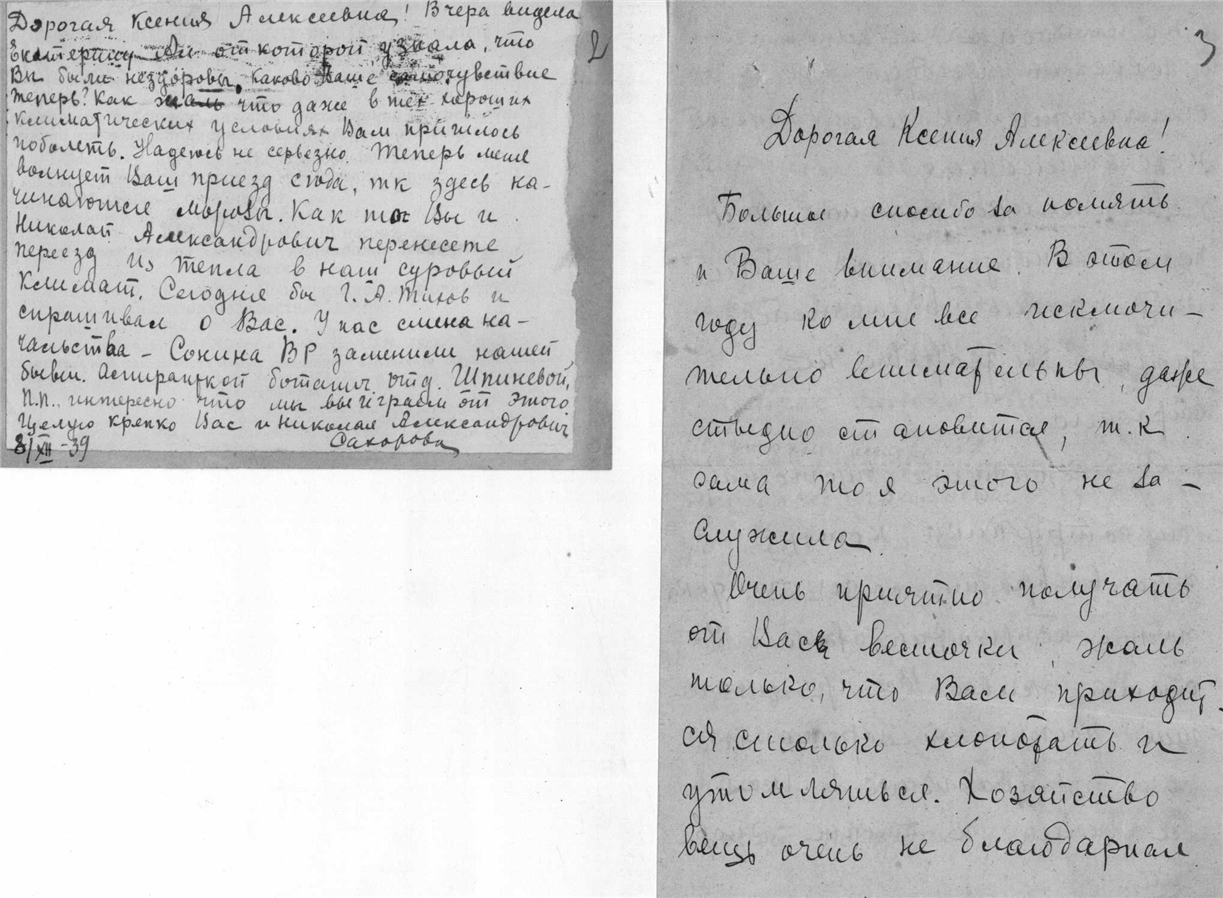 Дорогая Ксения Алексеевна! Вчера видела
Екатерину Ал от которой узнала, что
Вы были нездоровы, каково Ваше самочувствие
теперь? Как жаль что даже в тех хороших
климатических условиях Вам пришлось
поболеть. Надеюсь не серьезно. Теперь меня
волнует Ваш приезд сюда, тк здесь на-
чинаются морозы. Как то Вы и
Николай Александрович перенесете
переезд из тепла в наш суровый
климат. Сегодня был Г. А. Тихов и
спрашивал о Вас. У нас смена на-
чальства – Сокина ВР заменили нашей
бывш. Аспиранткой ботанич. отд. Шпиневой,
П.П., интересно что мы выиграем от этого
Целую крепко Вас и Николая Александрович
Сахорова
8/XII-39
2
3
Дорогая Ксения Алексеевна!
Большое спосибо за помять
и Ваше внимание. В этом
году ко мне все исключи-
тельно внимательны, даже
стыдно становится, т.к
сама то я этого не за-
служила.
Очень приятно получать
от Вас весточки, жаль
только, что Вам приходит-
ся столько хлопотать и
утомляться. Хозяйство
вещь очень не благодарная